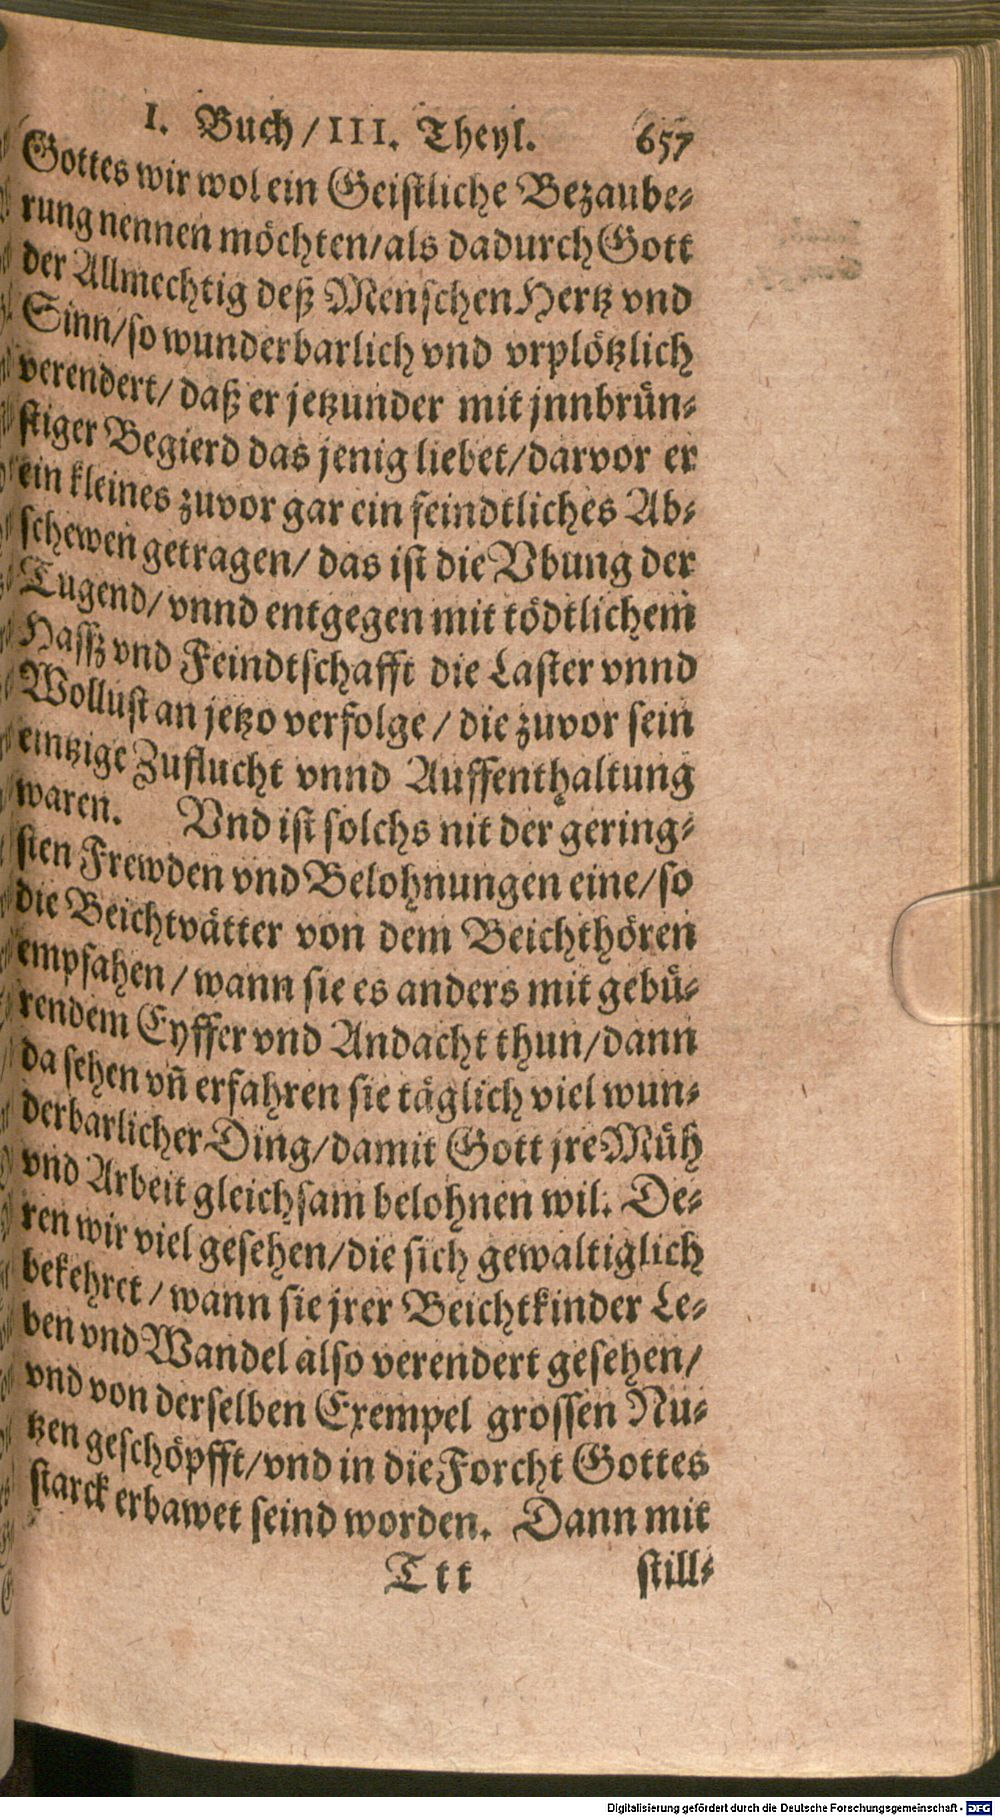 I. Buch / III. Theyl. 657
Gottes wir wol ein Geistliche Bezaube-
rung nennen möchten/ als dadurch Gott
der Allmechtig deß Menschen Hertz vnd
Sinn/ so wunderbarlich vnd vrplötzlich
verendert/ daß er jetzunder mit jnnbrün-
stiger Begierd das jenig liebet/ darvor er
ein kleines zuvor gar ein feindtliches Ab-
schewen getragen/ das ist die Vbung der
Tugend/ vnnd entgegen mit tödtlichem
Hassz vnd Feindtschafft die Laster vnnd
Wollust an jetzo verfolge / die zuvor sein
eintzige Zuflucht vnnd Auffenthaltung
waren. Vnd ist solchs nit der gering-
sten Frewden vnd Belohnungen eine/ so
die Beichtvätter von dem Beichthören
empfahen / wann sie es anders mit gebü-
rendem Eyffer vnd Andacht thun/ dann
da sehen vñ erfahren sie täglich viel wun-
derbarlicher Ding/ damit Gott jre Müh
vnd Arbeit gleichsam belohnen wil. De-
ren wir viel gesehen/ die sich gewaltiglich
bekehret / wann sie jrer Beichtkinder Le-
ben vnd Wandel also verendert gesehen/
vnd von derselben Exempel grossen Nu-
tzen geschöpfft/ vnd in die Forcht Gottes
starck erbawet seind worden. Dann mit
Ttt still-
Digitalisierung gefördert durch die Deutsche Forschungsgemeinschaft - DFG